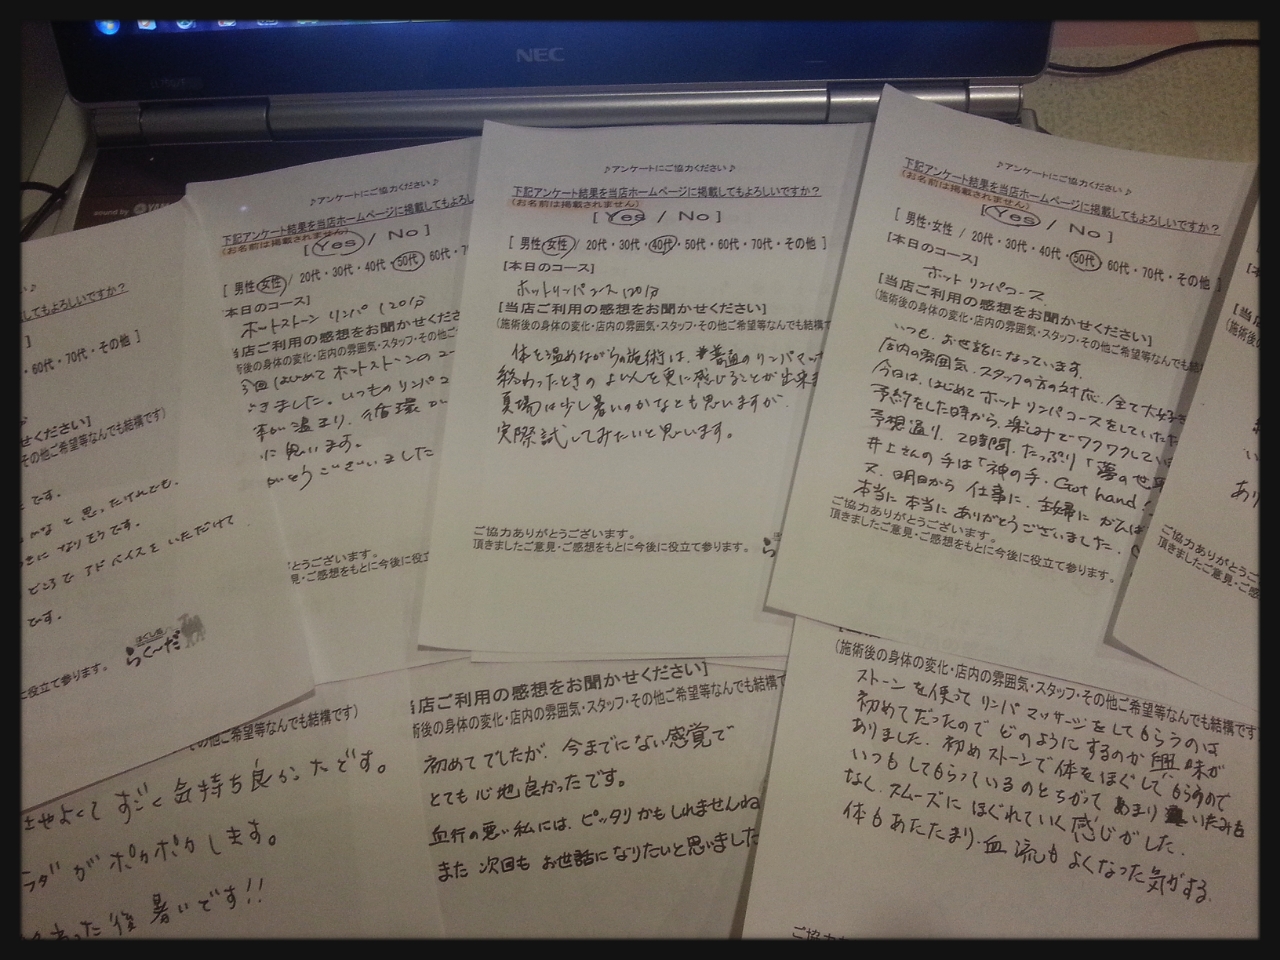 NEC
sound by YAMA
♪アンケートにご協力ください♪
下記アンケート結果を当店ホームページに掲載してもよろし
(お名前は掲載されません)
[ Yes / No ]
[ 男性・女性 / 20代・30代・40代・50代・60代・7
本日のコース]
ホットストーン リンパ 120分
当店ご利用の感想をお聞かせください
術後の身体の変化・店内の雰囲気・スタッフ・その
今回はじめて ホットストーンのコー
きました。いつものリンパコ
体が温まり、循環が
に思います。
ありがとうございました
とうございます。
見・ご感想をもとに今後に役立て参
♪アンケートにご協力ください♪
下記アンケート結果を当店ホームページに掲載してもよろしいですか？
(お名前は掲載されません)
[ Yes / No ]
[ 男性・女性 / 20代・30代・40代・50代・60代・70代・その他 ]
[本日のコース]
ホットリンパコース 120分
[当店ご利用の感想をお聞かせください]
(施術後の身体の変化・店内の雰囲気・スタッフ・その他ご希望等なんでも結構で
体を温めながらの施術は、普通のリンパマッサ
終わったときのよいんを更に感じることが出来ま
夏場は少し暑いのかなとも思いますが、
実際試してみたいと思います。
ご協力ありがとうございます。
頂きましたご意見・ご感想をもとに今後に役立て参ります。
♪アンケートにご協力ください♪
下記アンケート結果を当店ホームページに掲載してもよろしいですか？
(お名前は掲載されません)
[ Yes / No ]
[ 男性・女性 / 20代・30代・40代・50代・60代・70代・その他 ]
[本日のコース]
ホットリンパコース
[当店ご利用の感想をお聞かせください]
(施術後の身体の変化・店内の雰囲気・スタッフ・その他ご希望等なんでも結
いつも、お世話になっています。
店内の雰囲気、スタッフの方の対応、全て大好き
今日は、はじめてホットリンパコースをしていただ
予約をした時から、楽しみでワクワクしていま
予想通り、2時間、たっぷり「夢の世界
井上さんの手は「神の手、Got hand!
又、明日から 仕事に、主婦に がんば
本当に本当にありがとうございました。
ご協力ありがとうございます。
頂きましたご意見・ご感想をもとに今後に役立て参ります。
てもよろしいですか？
60代・70代・その他 ]
ください]
その他ご希望等なんでも結構です)
です。
かな と思ったけれども、
になりそうです。
ところで アドバイスを いただけて
です。
役立て参ります。
らく〜だ
その他ご希望等なんでも結構です)
すごく 気持ち良かったです。
ラダがポカポカします。
った後 暑いです!!
当店ご利用の感想をお聞かせください]
術後の身体の変化・店内の雰囲気・スタッフ・その他ご希望等なんでも結構で
初めてでしたが、今までにない感覚で
とても心地良かったです。
血行の悪い私には、ピッタリかもしれませんね
また 次回も お世話になりたいと思いました
(施術後の身体の変化・店内の雰囲気・スタッフ・その他ご希望等なんでも結構です
ストーンを使って リンパ マッサージをしてもらうのは
初めてだったので どのようにするのか 興味が
ありました。初めストーンで体をほぐしてもらうので
いつも してもらっているのとちがって あまり 痛みも
なく、スムーズに ほぐれていく感じがした。
体もあたたまり、血流も よくなった気がする。
ご協力あ
ご協力ありがとうござ
頂きましたご意見・ご感